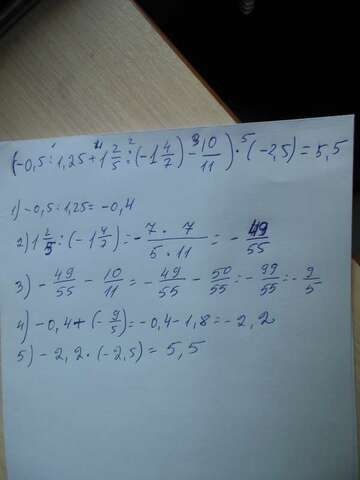 (-0,5:1,25+1 2/5:(-1 4/7)-10/11)·(-2,5)=5,5
1) -0,5:1,25=-0,4
2) 1 2/5:(-1 4/7)=-7·7/5·11=-49/55
3) -49/55-10/11=-49/55-50/55=-99/55=-9/5
4) -0,4+(-9/5)=-0,4-1,8=-2,2
5) -2,2·(-2,5)=5,5